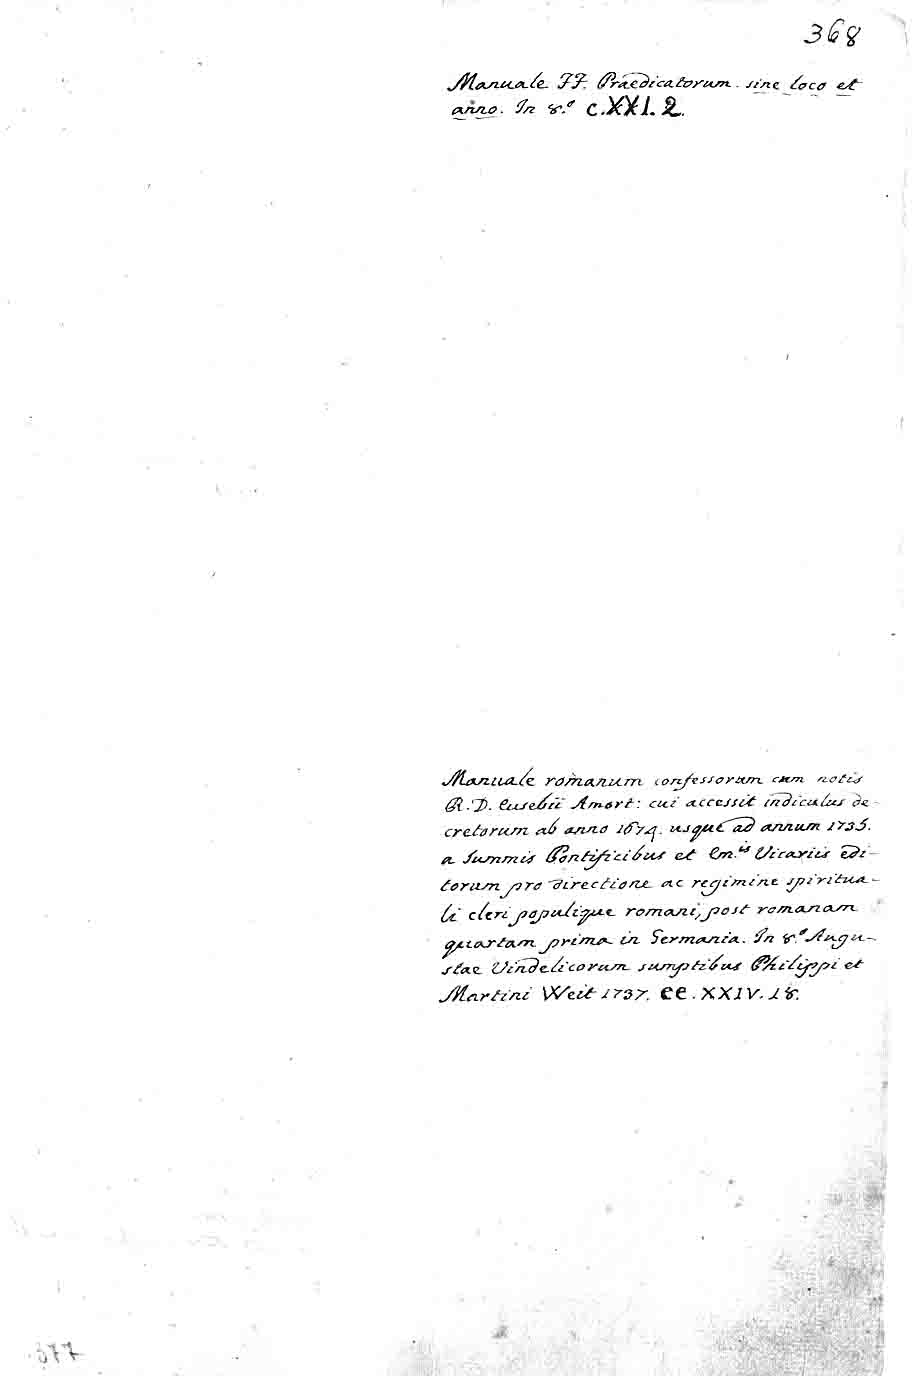 368
Manuale FF. Praedicatorum. sine loco et
anno. In 8.º C.XXI.2.
Manuale romanum confessorum cum notis
R.D. Eusebii Amort: cui accessit indiculus de-
cretorum ab anno 1674. usque ad annum 1735.
a Summis Pontificibus et Em.is Vicariis edi-
torum pro directione ac regimine spiritua-
li cleri populique romani, post romanam
quartam prima in Germania. In 8.º Augu-
stae Vindelicorum sumptibus Philippi et
Martini Weit 1737. ee.XXIV.18.